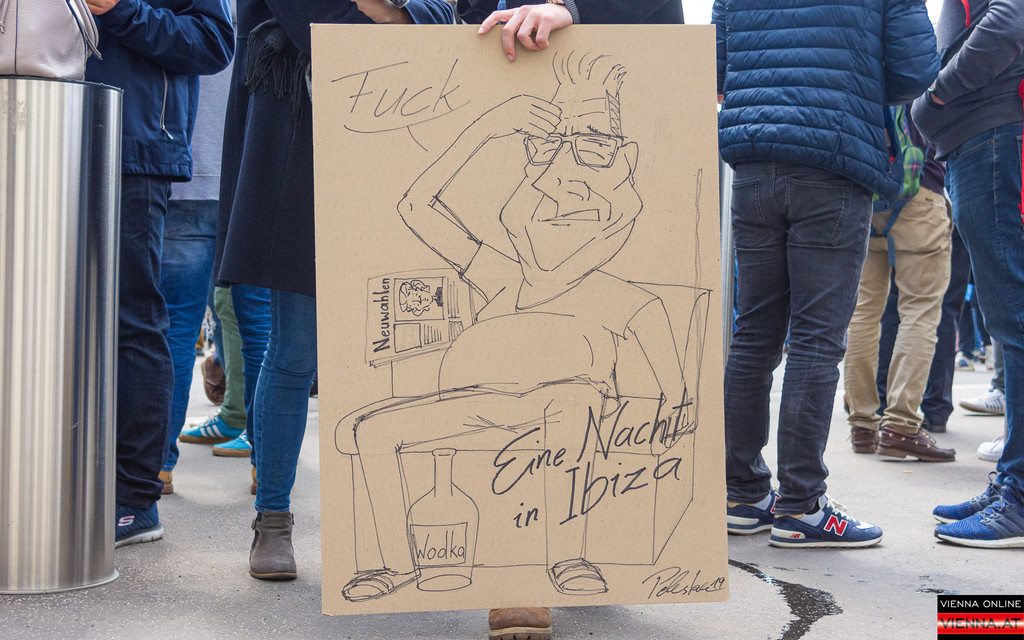 Fuck
Neuwahlen
Eine Nacht
in Ibiza
Wodka
19
N
S
VIENNA ONLINE
VIENNA.AT